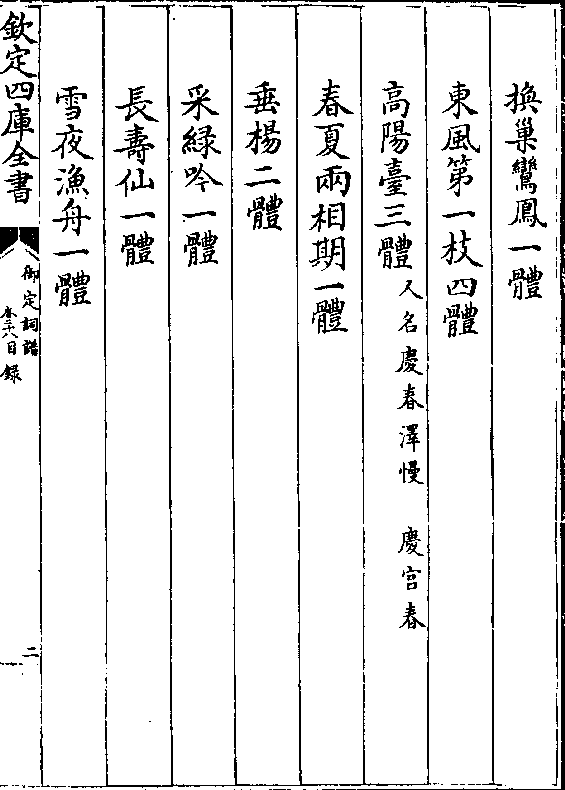 換巢鸞鳳一體
東風第一枝四體
高陽臺三體 又名慶春澤慢 慶宫春
春夏兩相期一體
垂楊二體
采緑吟一體
長壽仙一體
雪夜漁舟一體
欽定四庫全書
御定詞譜
卷二十八目錄
二